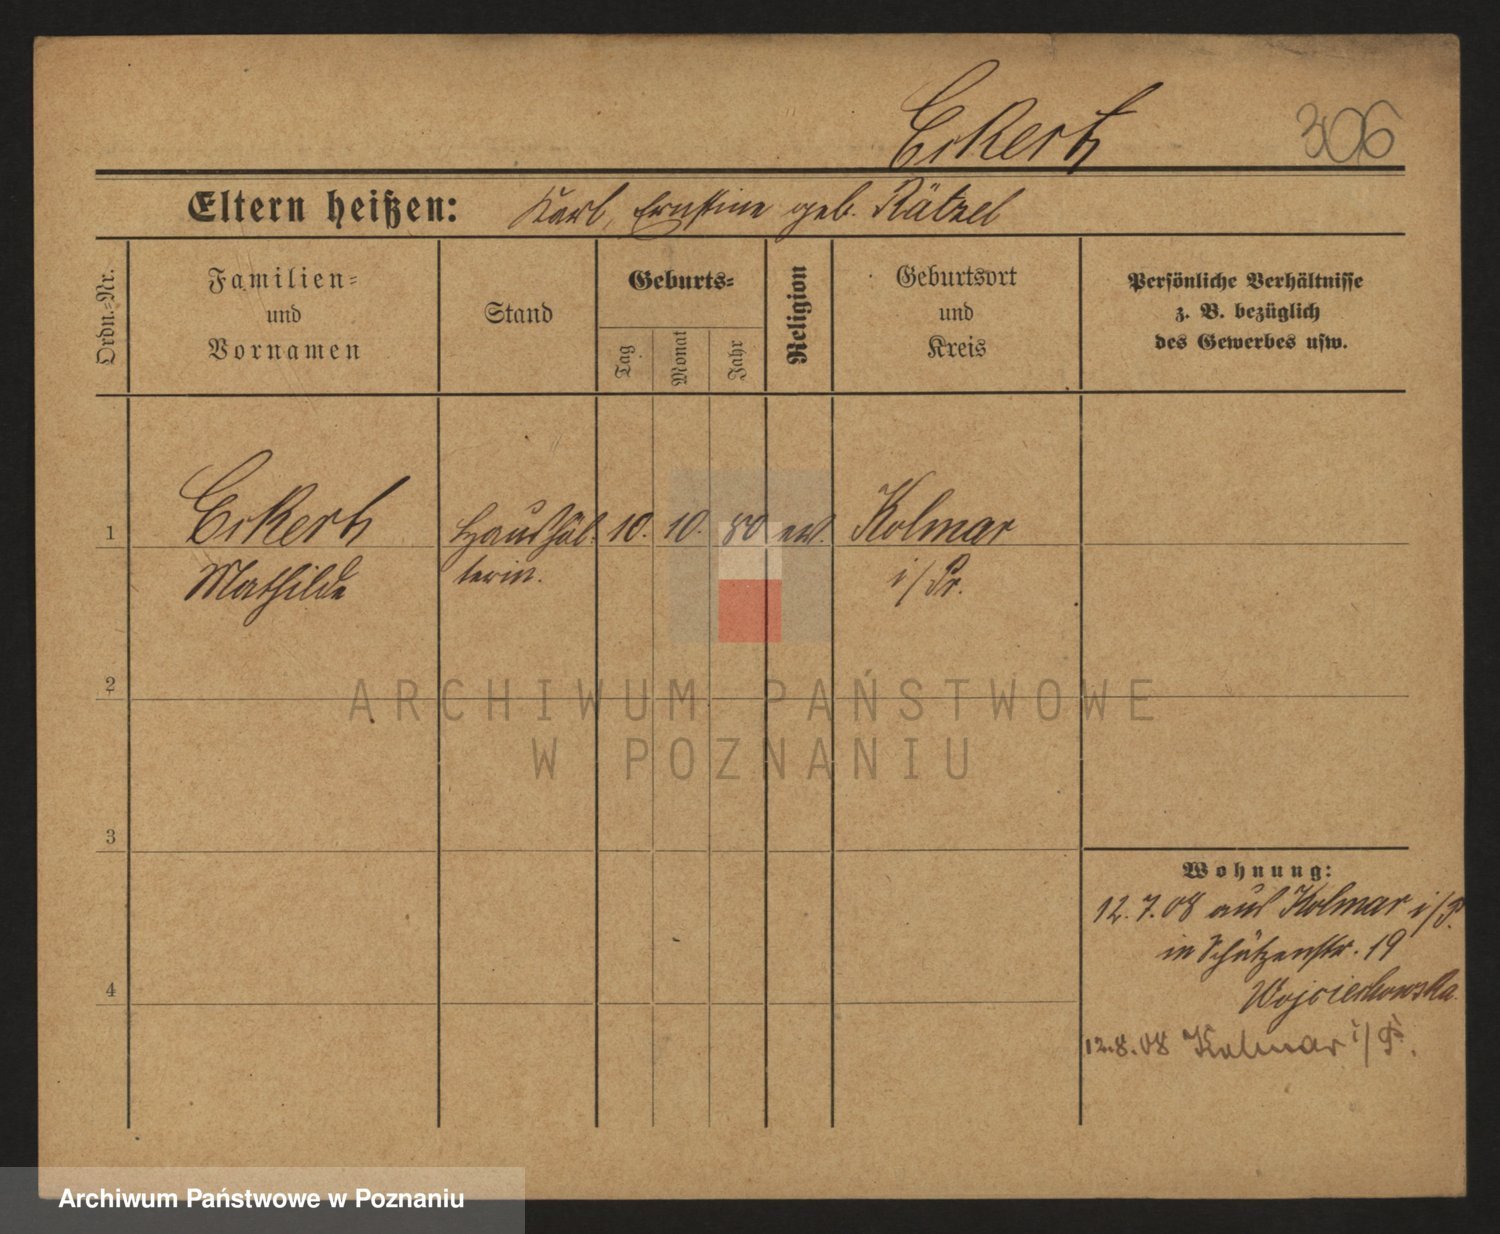 Eckert 306
Eltern heißen: Karl, Ernstine geb. Rätzel
Ordn.-Nr.
Familien-
und
Vornamen
Stand
Geburts-
Tag
Monat
Jahr
Religion
Geburtsort
und
Kreis
Persönliche Verhältnisse
z. B. bezüglich
des Gewerbes usw.
1 Eckert Haushäl- 10. 10. 80 ev. Kolmar
Mathilde terin. i/Pr.
2
3
Wohnung:
12.7.08 aus Kolmar i/P.
in Schützenstr. 19
Wojciechowska.
4
12.8.08 Kolmar i/P.
ARCHIWUM PAŃSTWOWE
W POZNANIU
Archiwum Państwowe w Poznaniu